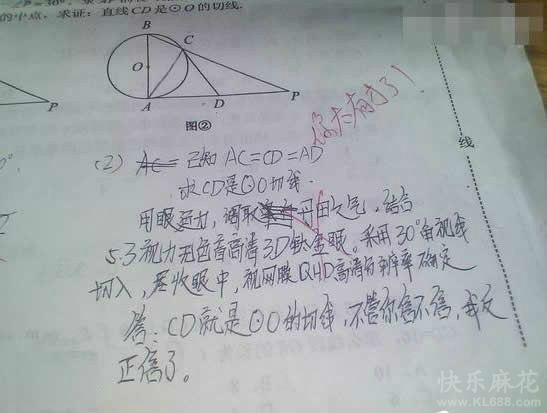 的中点，求证：直线CD是⊙O的切线.
B
C
O
A
D
P
P
图②
你太有才了！
线
(2) AC= 已知 AC=CD=AD
求CD是⊙O切线.
用眼运力，调取丹田之气，结合
5.3视力无色盲高清3D钛金眼。采用30°角视线
切入，尽收眼中，视网膜QHD高清分辨率确定
答：CD就是⊙O的切线，不管你信不信，我反
正信了。
快乐麻花
KL688.com